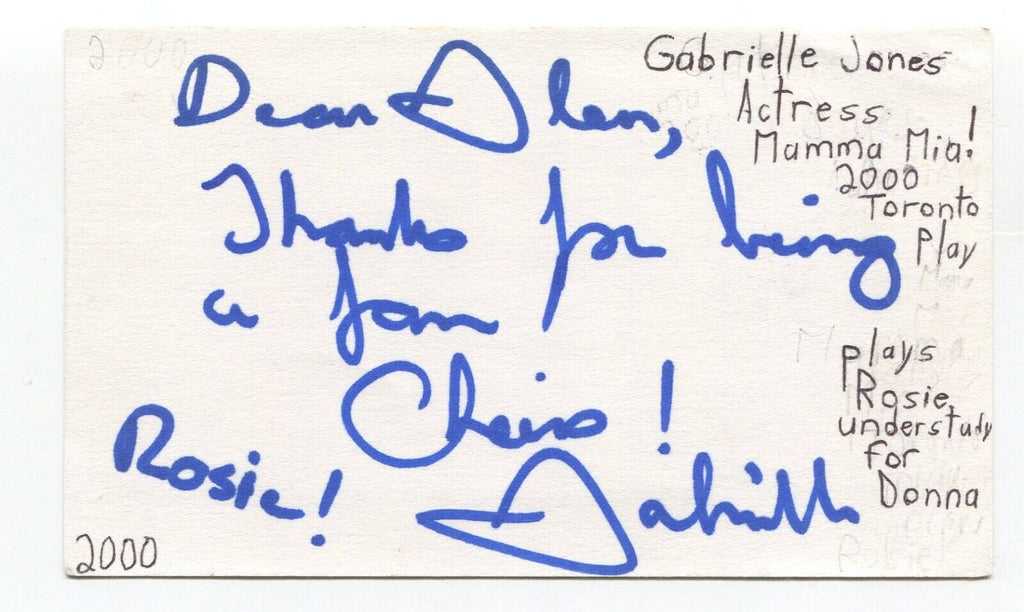 Dear Glen,
Thanks for being
a fan!
Cheers!
Rosie! Gabrielle
Gabrielle Jones
Actress
Mamma Mia!
2000
Toronto
Play
plays
Rosie,
understudy
for
Donna
2000